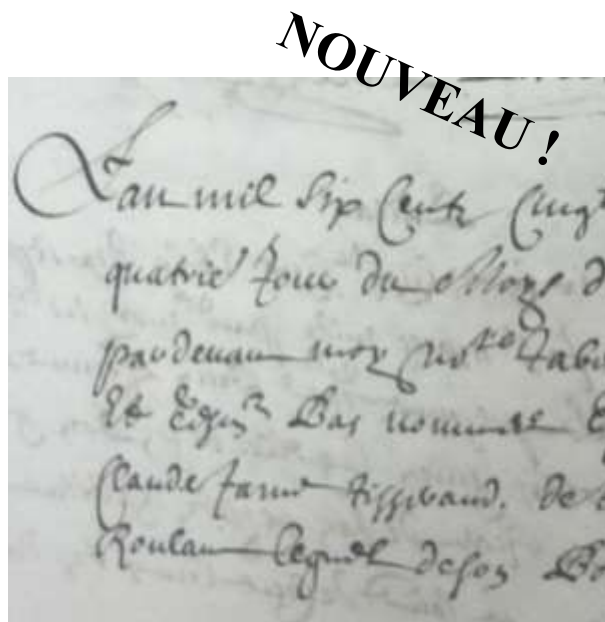 NOUVEAU !
L'an mil six Centz Cinq
quatrie Jour du Moys d
pardevant moy no.re Tab
Et tesm. Bas nommes
Claude de
Roulan lequel de son Bo